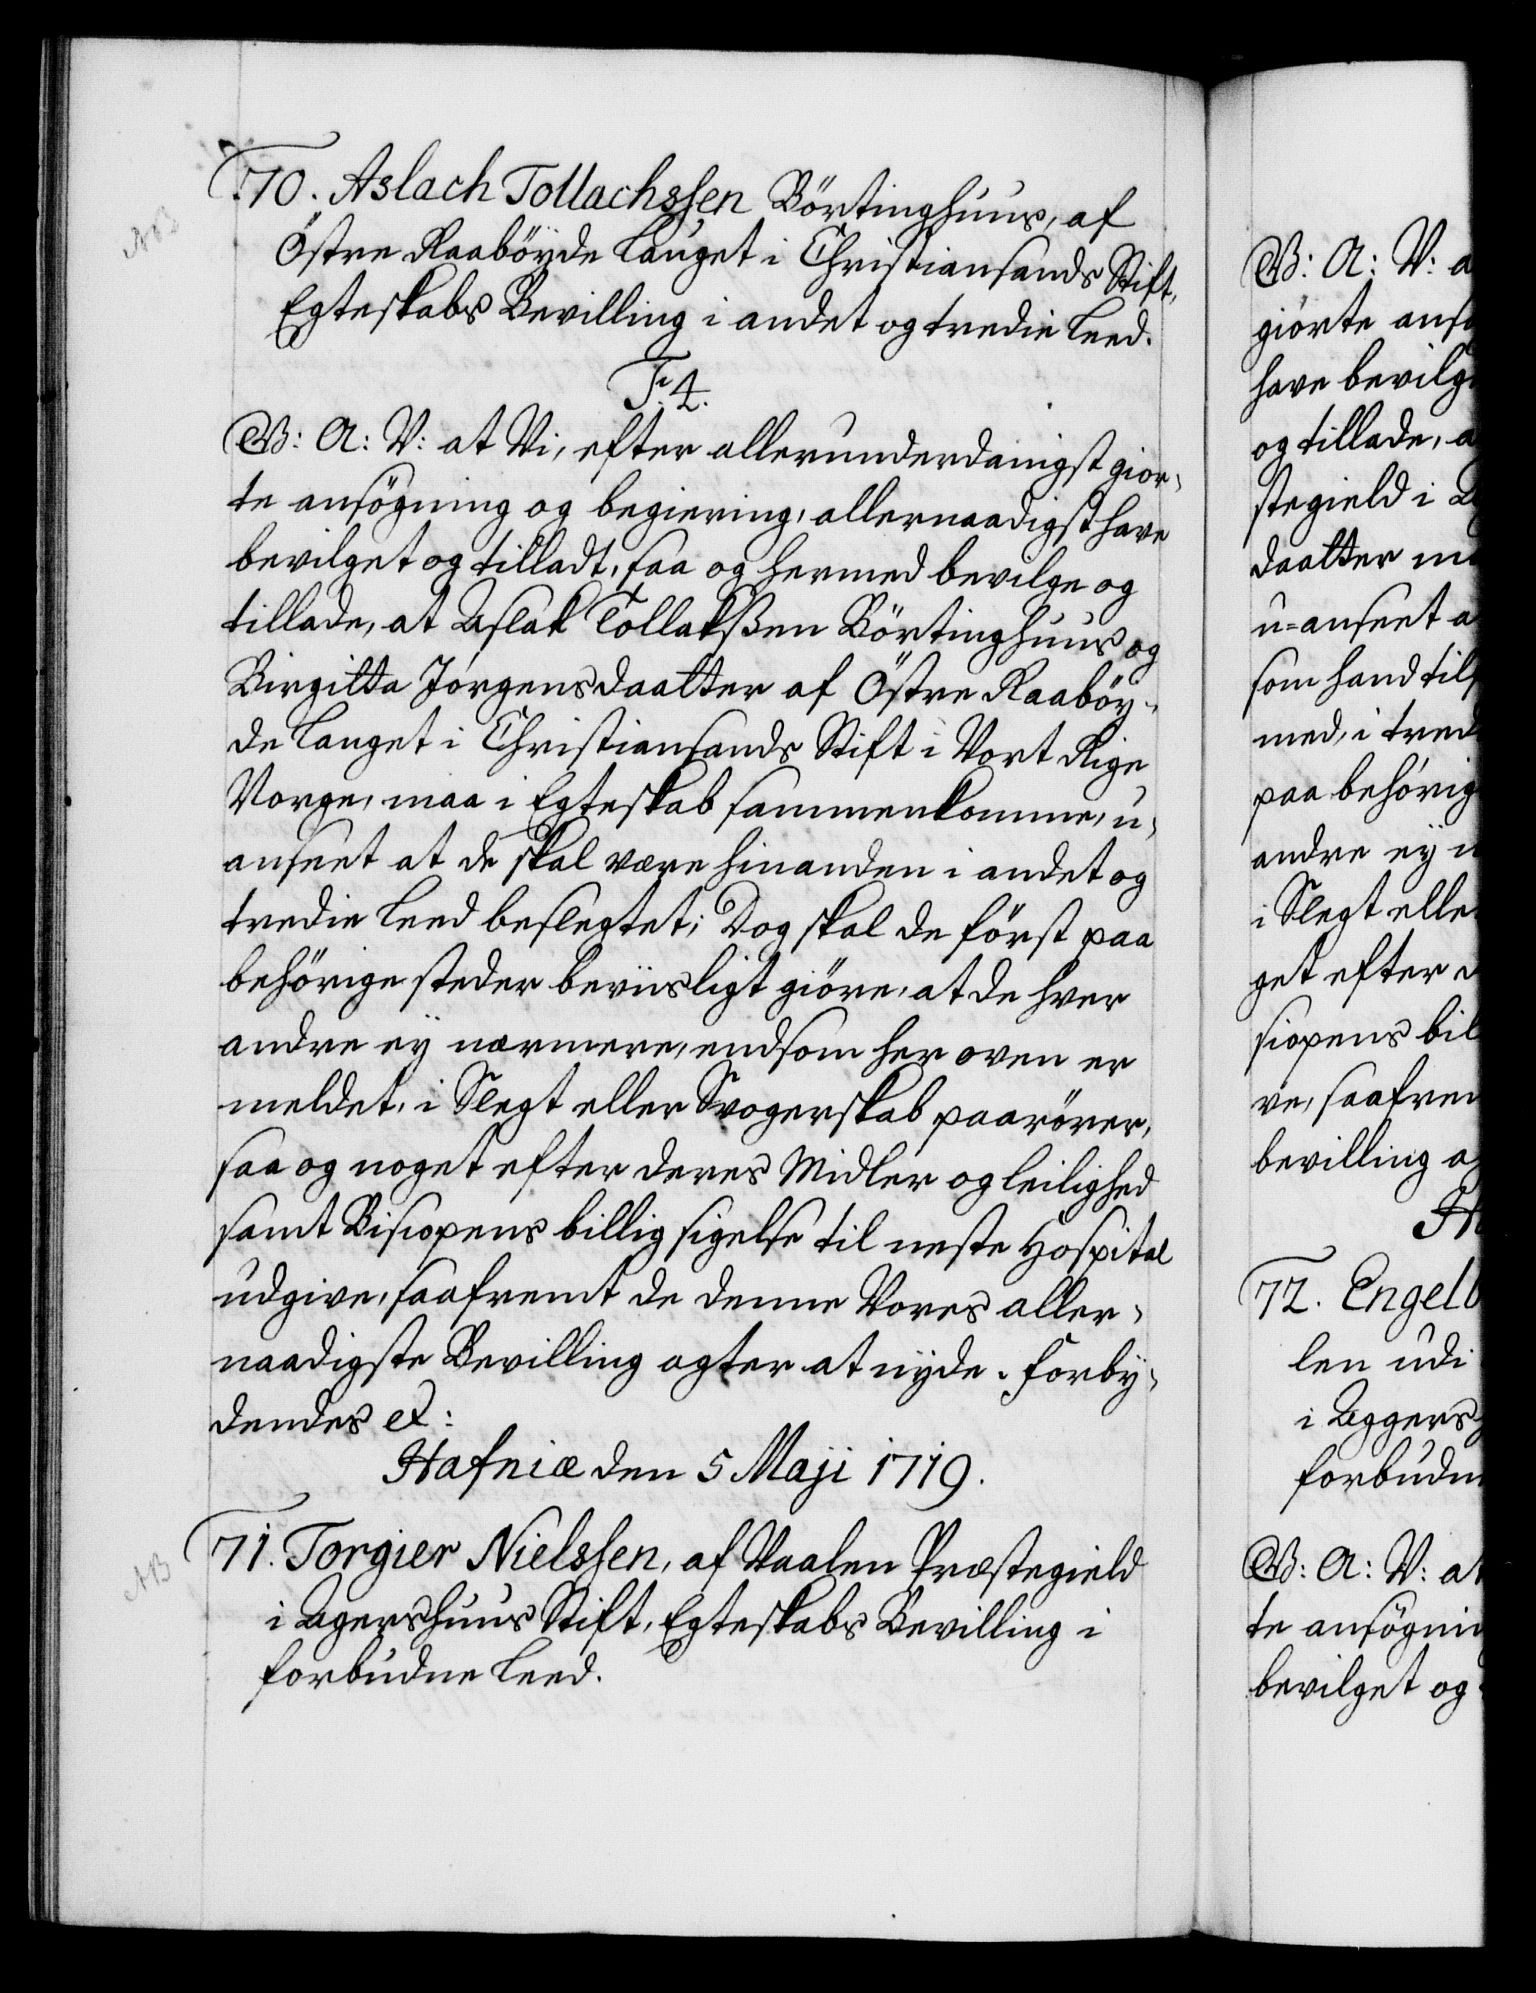 70. Aslach Tollachssen Börtinghuus, af
Östre Raaböyde Lauget i Christiansands Stift,
Egteskabs Bevilling i andet og tredie Leed.
F. 4.
G: A: V: at Vi, efter allerunderdanigst gior-
te ansögning og begiering, allernaadigst have
bevilget og tilladt, saa og hermed bevilge og
tillade, at Aslak Tollakßen Börtinghuus og
Birgitta Jørgensdaatter af Östre Raaböy-
de Lauget i Christiansands Stift i Vort Rige
Norge, maa i Egteskab sammenkomme, u-
anseet at de skal være hinanden i andet og
tredie Leed beslegtet; Dog skal de först paa
behörige steder beviisligt giöre, at de hver
andre eÿ nærmere, end som her oven er
meldet, i Slegt eller Svogerskab paarörer,
saa og noget efter deres Midler og leilighed
samt Bisiopens billig sigelse til neste Hospital
udgive, saafremt de denne Vores aller-
naadigste Bevilling agter at nyde. Forby-
dendes etc:
Hafniæ den 5 Maji 1719.
71. Torgier Nielssen, af Vaalen Præstegield
i Agershuus Stift, Egteskabs Bevilling i
forbudne Leed.
G: A: V: a
giorte ansö
have bevilge
og tillade, a
stegield i A
daatter m
u-anseet a
som hand til
med, i tred
paa behörig
andre eÿ n
i Slegt elle
get efter d
siopens bil
ve, saafrem
bevilling a
H
72. Engelb
len udi
i Aggers
forbudn
G: A: V: at
te ansögnin
bevilget og